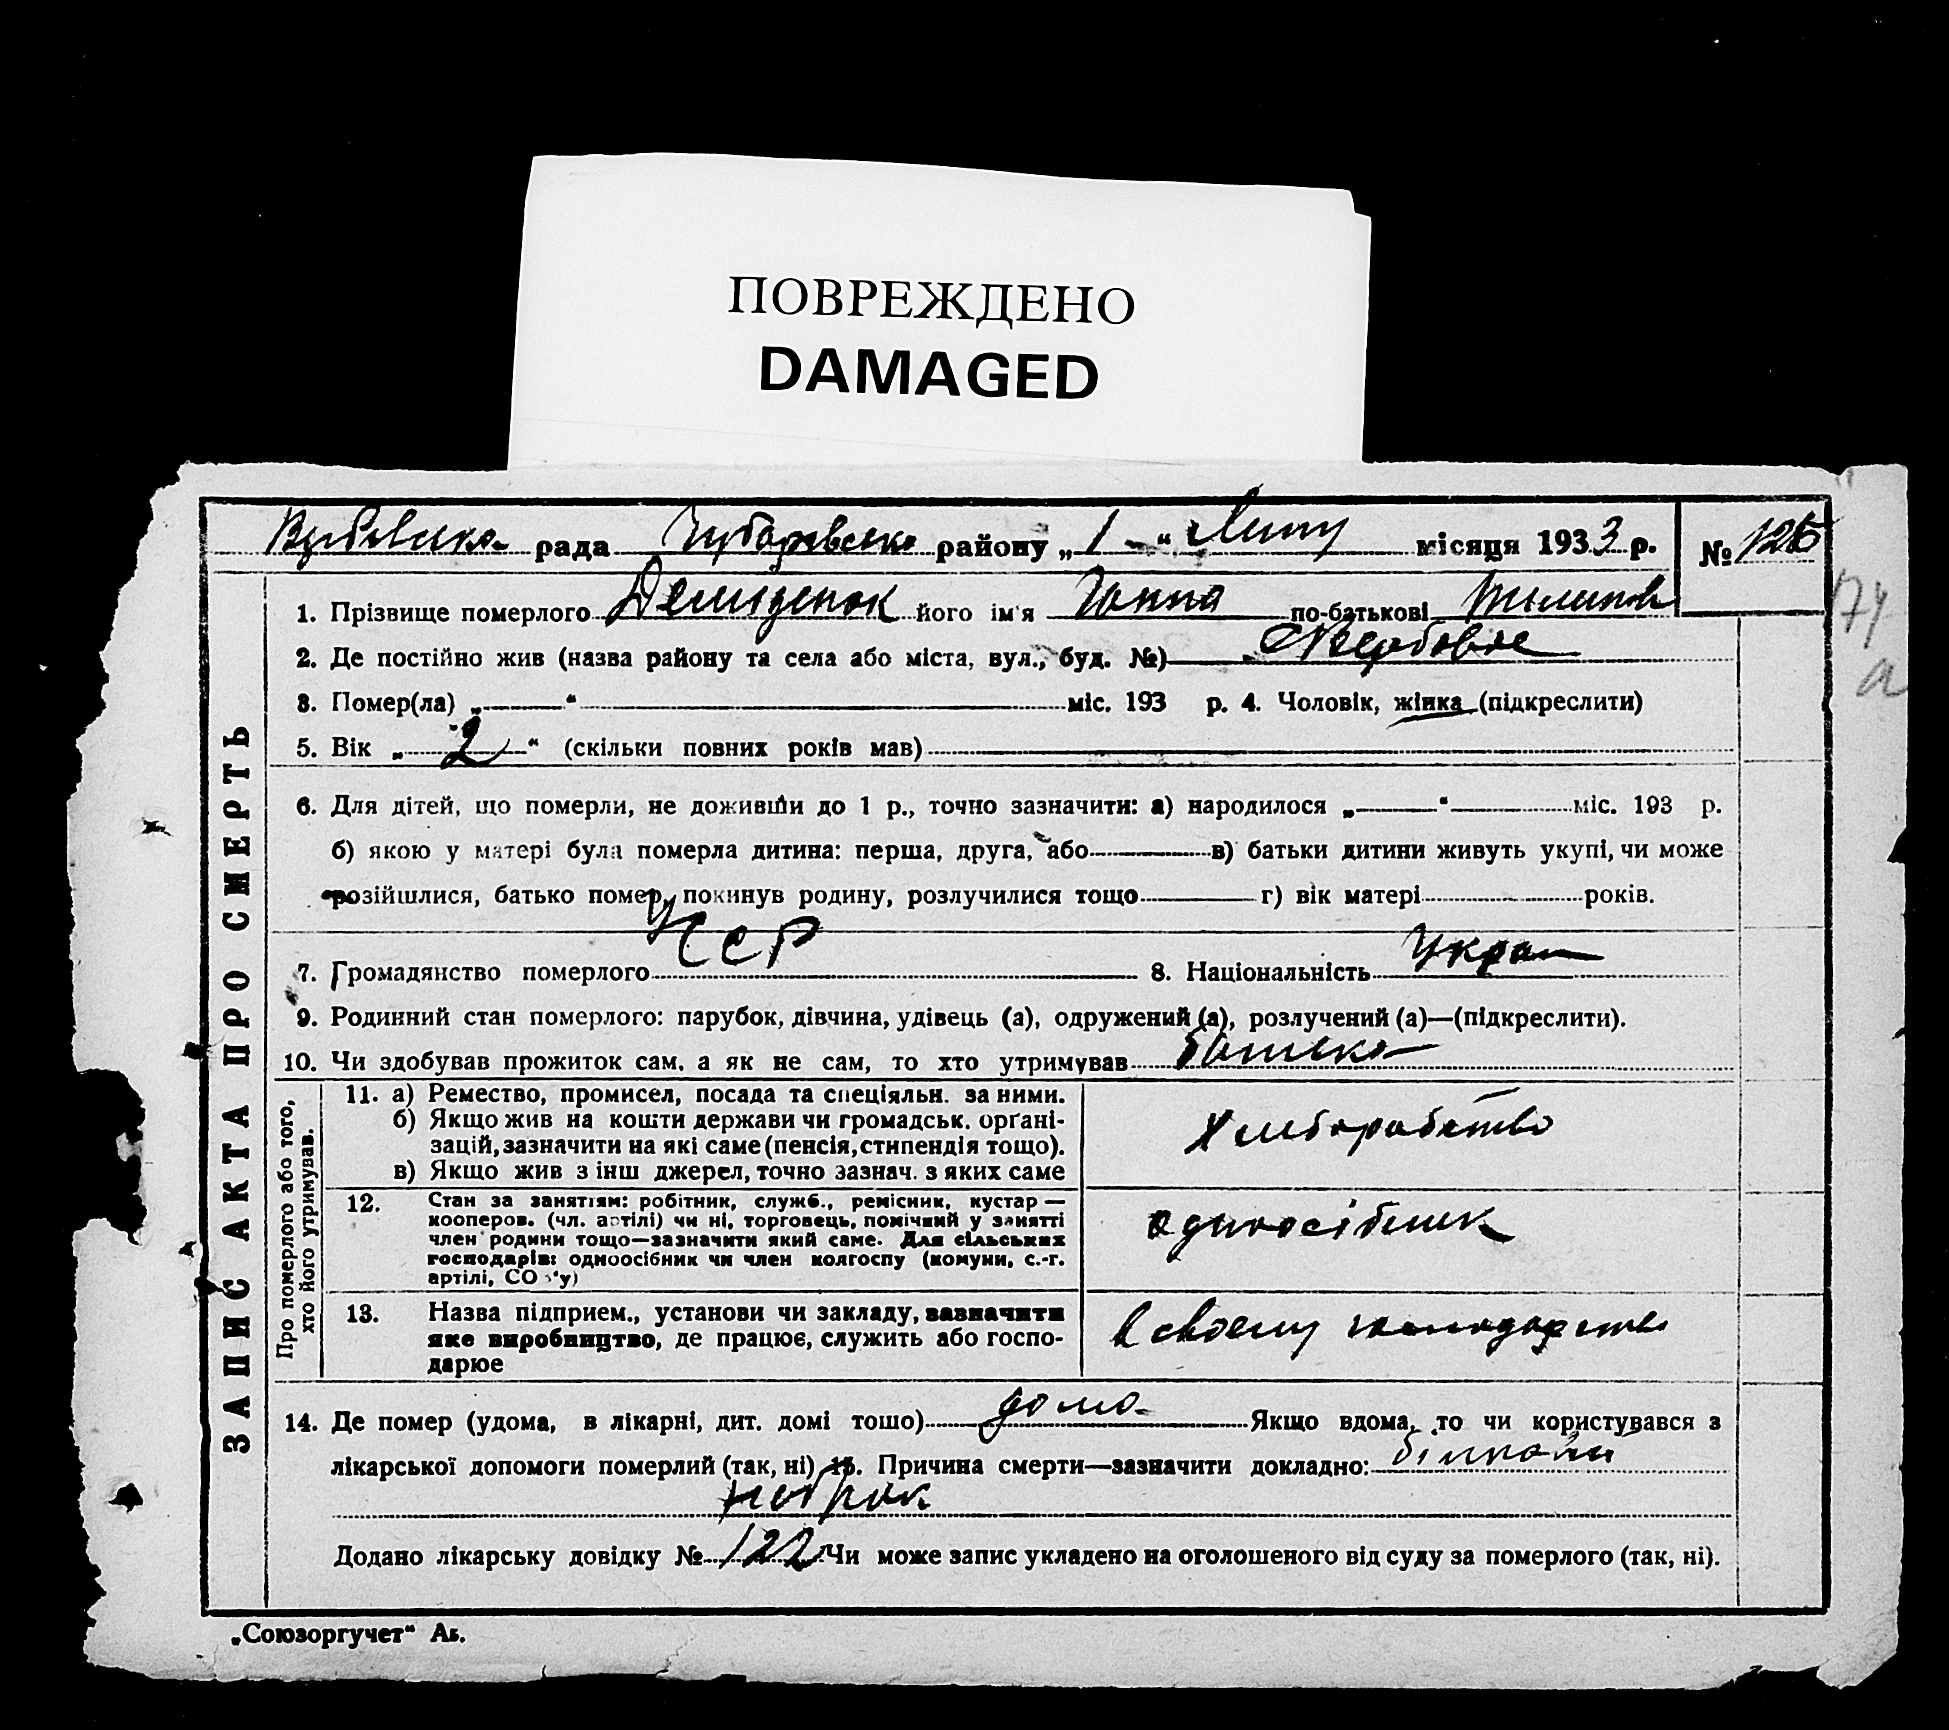 ПОВРЕЖДЕНО
DAMAGED
Вербовська рада Чубаровсько району „ 1 “ Липу місяця 1933 р. № 126
174
а
1. Прізвище померлого Демиденок його ім'я Ганна по-батькові
2. Де постійно жив (назва району та села або міста, вул., буд. №) с Вербовое
3. Помер(ла) „ “ міс. 193 р. 4. Чоловік, жінка (підкреслити)
5. Вік „ 2 “ (скільки повних років мав)
6. Для дітей, що померли, не доживши до 1 р., точно зазначити: а) народилося „ “ міс. 193 р.
б) якою у матері була померла дитина: перша, друга, або в) батьки дитини живуть укупі, чи може
розійшлися, батько помер, покинув родину, розлучилися тощо г) вік матері років.
7. Громадянство померлого УССР 8. Національність Украін
9. Родинний стан померлого: парубок, дівчина, удівець (а), одружений (а), розлучений (а)—(підкреслити).
10. Чи здобував прожиток сам, а як не сам, то хто утримував батько
ЗАПИС АКТА ПРО СМЕРТЬ
Про померлого або того, хто його утримував.
11. а) Ремество, промисел, посада та спеціяльн. за ними.
б) Якщо жив на кошти держави чи громадськ. орґані-
зацій, зазначити на які саме (пенсія, стипендія тощо).
в) Якщо жив з інш джерел, точно зазнач. з яких саме
Хлиборобство
12. Стан за заняттям: робітник, служб., ремісник, кустар —
кооперов. (чл. артілі) чи ні, торговець, помічний у занятті
член родини тощо—зазначити який саме. Для сільських
господарів: одноосібник чи член колгоспу (комуни, с.-г.
артілі, СО у)
одноосібник
13. Назва підприєм., установи чи закладу, зазначити
яке виробництво, де працює, служить або госпо-
дарює
в своему господарстві
14. Де помер (удома, в лікарні, дит. домі тощо) дома Якщо вдома, то чи користувався з
лікарської допомоги померлий (так, ні) 15. Причина смерти—зазначити докладно:
Додано лікарську довідку № 122 Чи може запис укладено на оголошеного від суду за померлого (так, ні).
„Союзоргучет“ Аб.